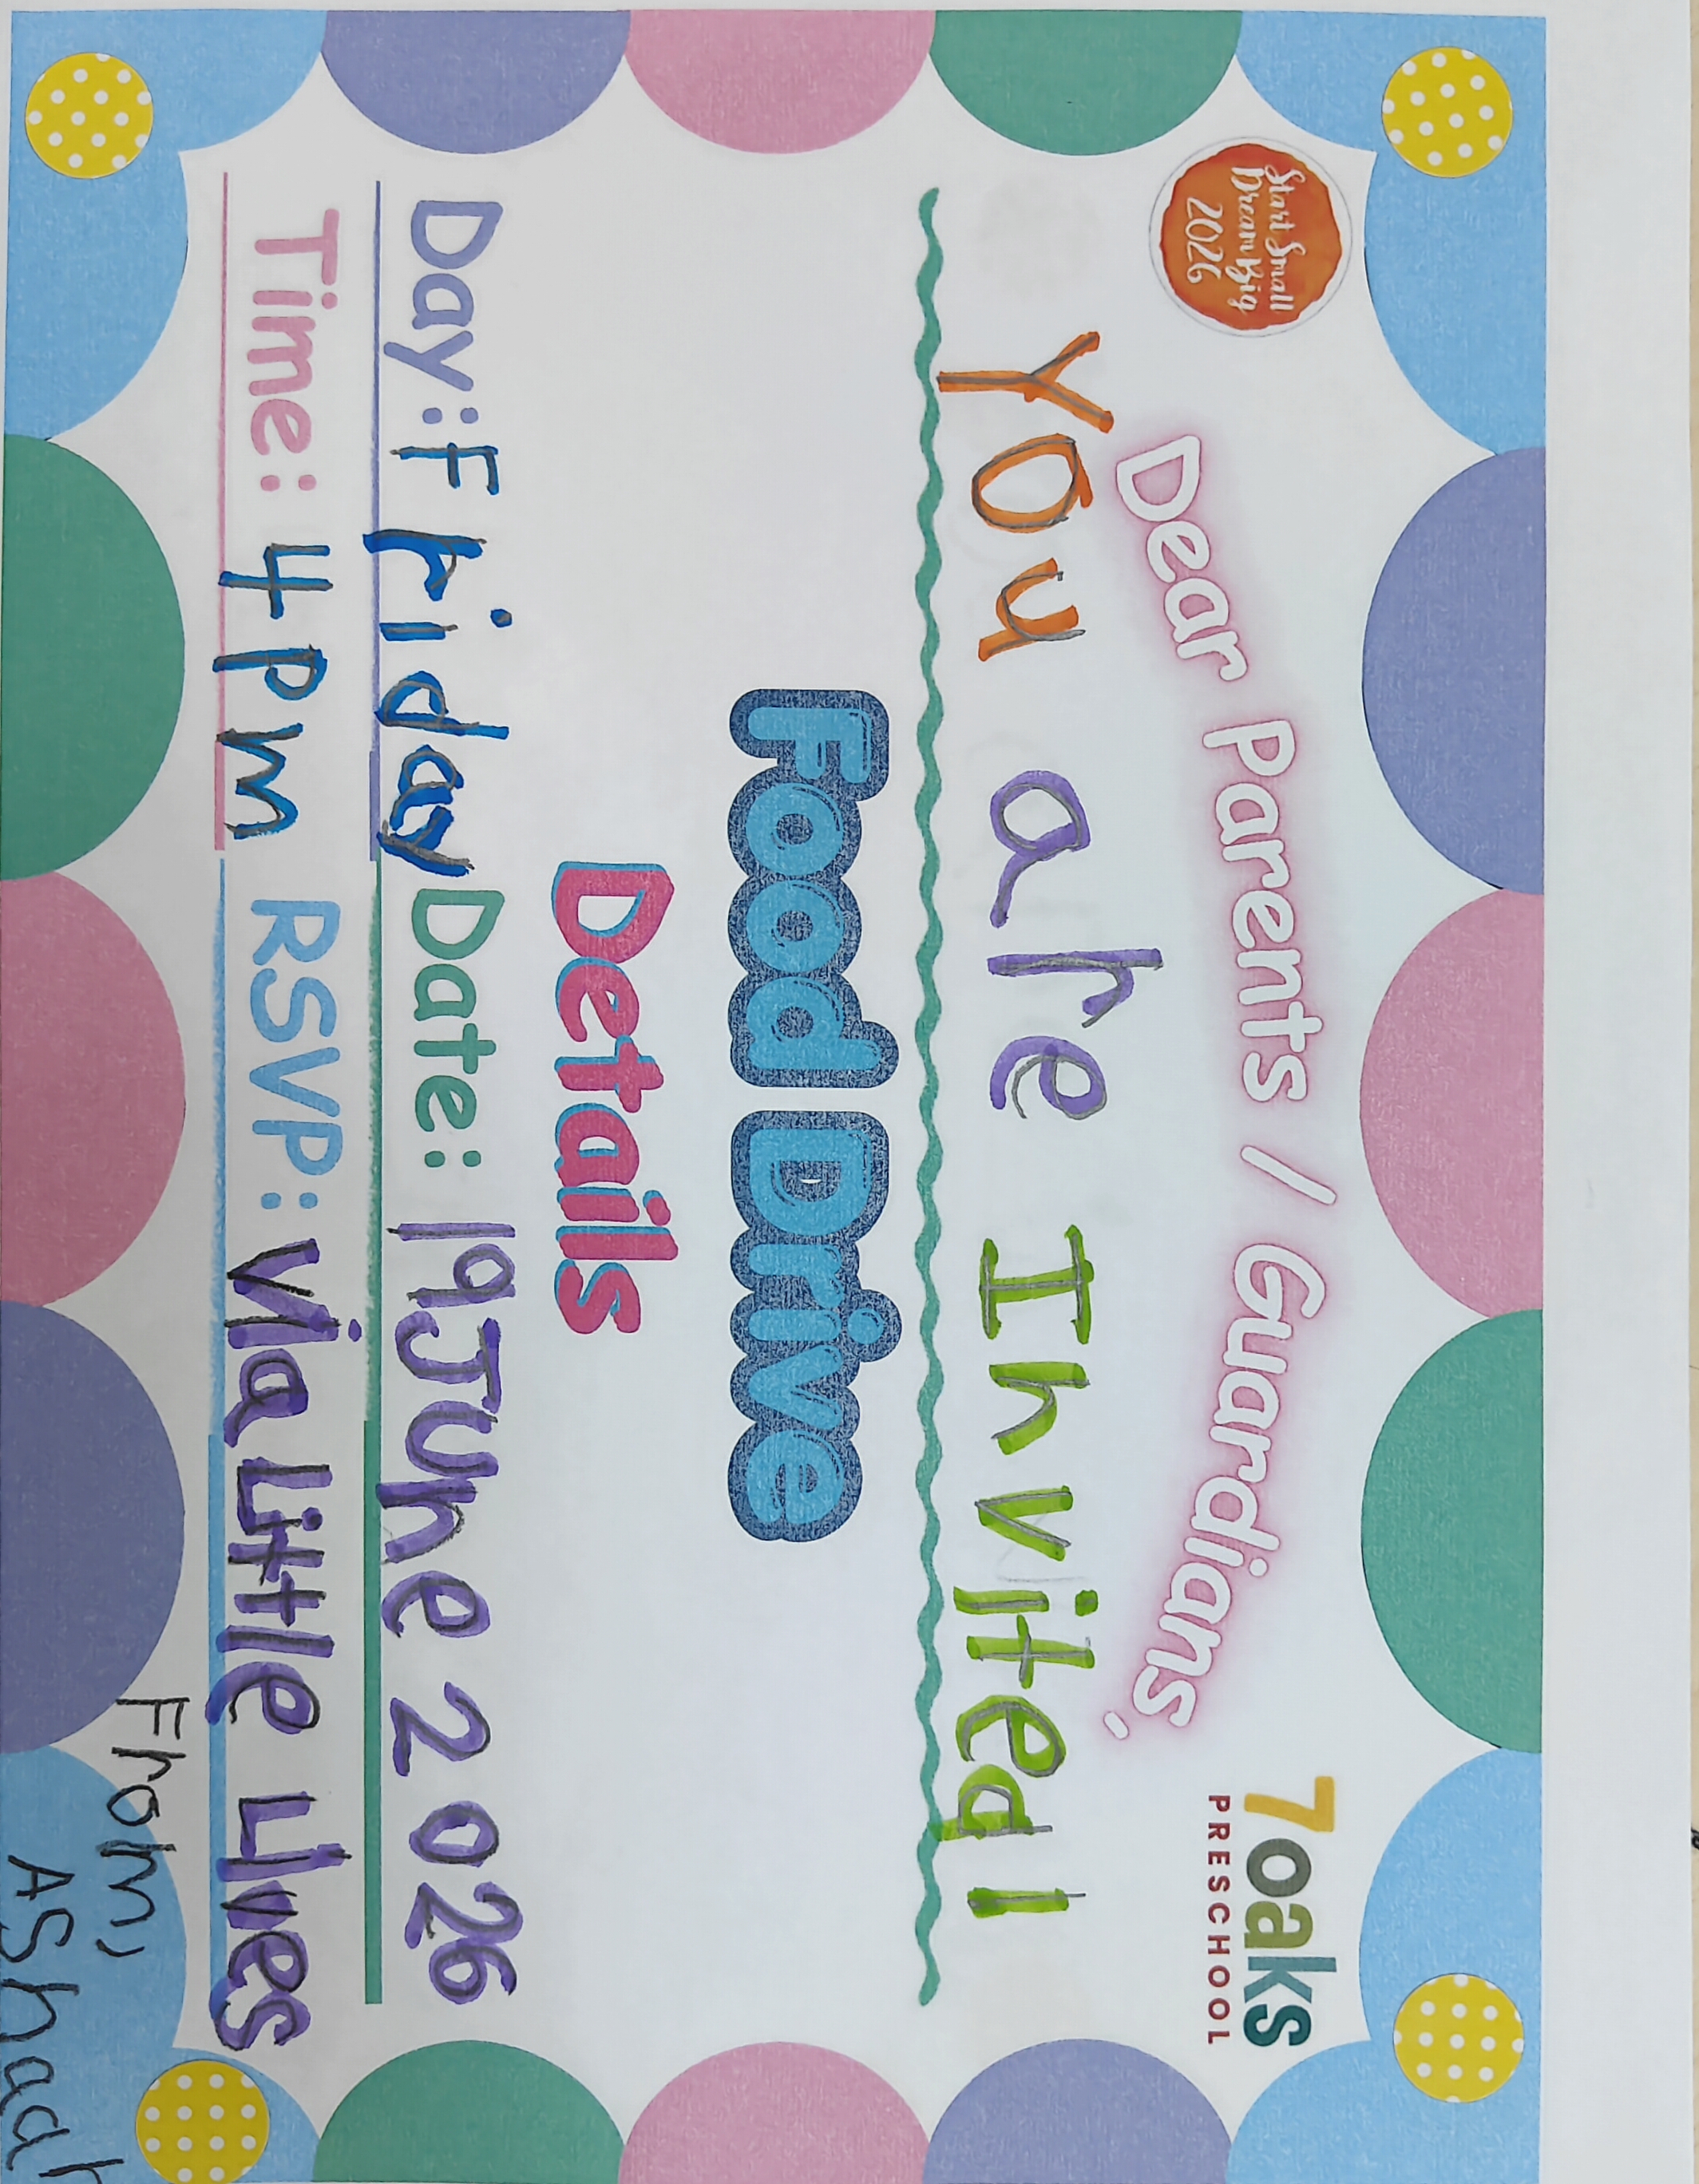 Start Small
Dream Big
2026
7oaks
PRESCHOOL
Dear Parents / Guardians,
You are Invited!
Food Drive
Details
Day: Friday Date: 19 June 2026
Time: 4 pm RSVP: Via Little Lives
From,